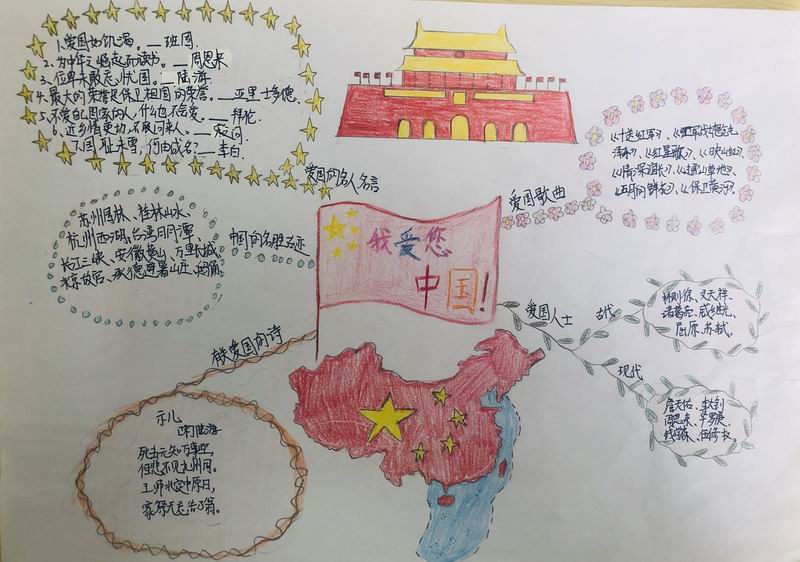 1.爱国如饥渴。——班固
2.为中华之崛起而读书。——周恩来
3.位卑未敢忘忧国。——陆游
4.最大的荣誉是保卫祖国的荣誉。——亚里士多德
5.不爱自己国家的人,什么也不会爱。——拜伦
6.近乡情更切,不敢问来人。——宋问
7.国耻未雪,何由成名?——李白
爱国的名人名言
爱国歌曲
《十送红军》、《红军战士想念毛
泽东》、《红星歌》、《映山红》、
《情深谊长》、《过雪山草地》、
《五月的鲜花》、《保卫黄河》。
苏州园林、桂林山水、
杭州西湖、台湾日月潭、
长江三峡、安徽黄山、万里长城、
北京故宫、承德避暑山庄、兵马俑。
中国的名胜古迹
我爱您
中国!
有关爱国的诗
示儿
陆游
死去元知万事空,
但悲不见九州同。
王师北定中原日,
家祭无忘告乃翁。
爱国人士
古代
林则徐、文天祥、
诸葛亮、戚继光、
屈原、苏轼。
现代
詹天佑、李大钊
周恩来、华罗庚、
钱学森、